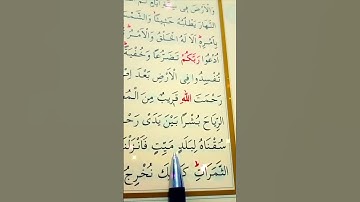 وَالْاَرْضَ فِى
النَّهَارَ يَطْلُبُهُ حَث۪يثًا وَالشَّمْ
بِاَمْرِه۪ اَلَا لَهُ الْخَلْقُ وَالْاَمْرُ
اُدْعُوا رَبَّكُمْ تَضَرُّعًا وَخُفْيَةً
تُفْسِدُوا فِى الْاَرْضِ بَعْدَ اِصْ
رَحْمَتَ اللّٰهِ قَر۪يبٌ مِنَ الْمُ
الرِّيَاحَ بُشْرًا بَيْنَ يَدَىْ رَحْ
سُقْنَاهُ لِبَلَدٍ مَيِّتٍ فَاَنْزَلْنَ
الثَّمَرَاتِ نُخْرِجُ